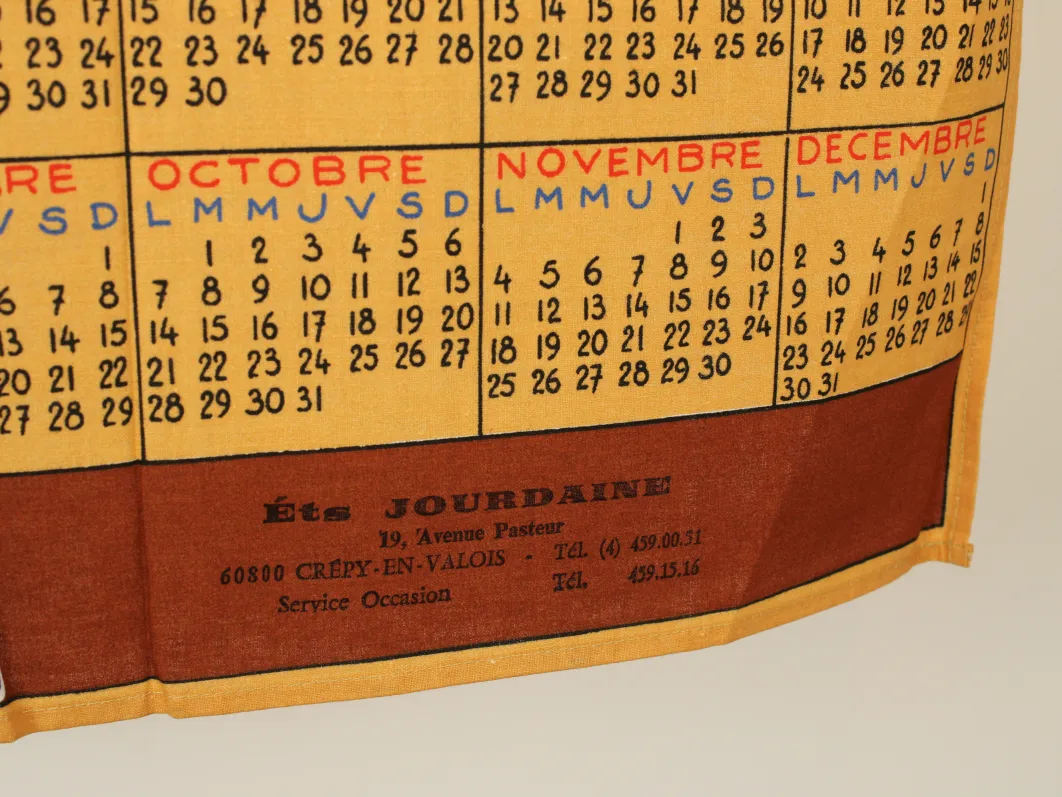 16 17 15 16 17 18 19 20 21 13 14 15 16 17 18 19 10 11 12 13 14 15 16
23 24 22 23 24 25 26 27 28 20 21 22 23 24 25 26 17 18 19 20 21 22 23
30 31 29 30 27 28 29 30 31 24 25 26 27 28 29 30
RE OCTOBRE NOVEMBRE DECEMBRE
V S D L M M J V S D L M M J V S D L M M J V S D
1 1 2 3 4 5 6 1 2 3 1
6 7 8 7 8 9 10 11 12 13 4 5 6 7 8 9 10 2 3 4 5 6 7 8
13 14 15 14 15 16 17 18 19 20 11 12 13 14 15 16 17 9 10 11 12 13 14 15
20 21 22 21 22 23 24 25 26 27 18 19 20 21 22 23 24 16 17 18 19 20 21 22
27 28 29 28 29 30 31 25 26 27 28 29 30 23 24 25 26 27 28
30 31
Éts JOURDAINE
19, Avenue Pasteur
60800 CRÉPY-EN-VALOIS - Tél. (4) 459.00.51
Service Occasion Tél. 459.15.16